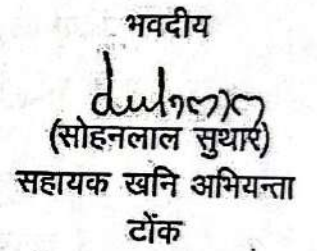 भवदीय
(सोहनलाल सुथार)
सहायक खनि अभियन्ता
टोंक